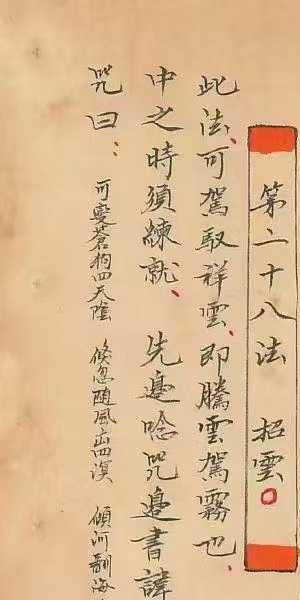 第二十八法 招雲
此法、可駕馭祥雲、即騰雲駕霧也、
中之時須練就、先邊唸咒邊書諱
咒曰、可變蒼狗四天陰 倏忽隨風出四溟 傾河翻海